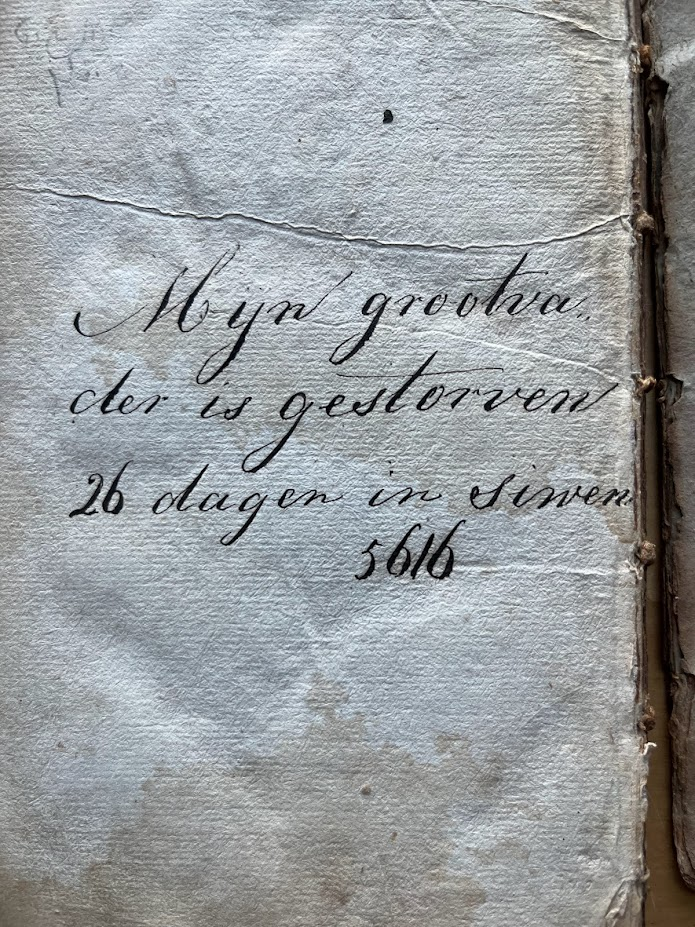 Mijn grootva„
der is gestorven
26 dagen in siwen
5616